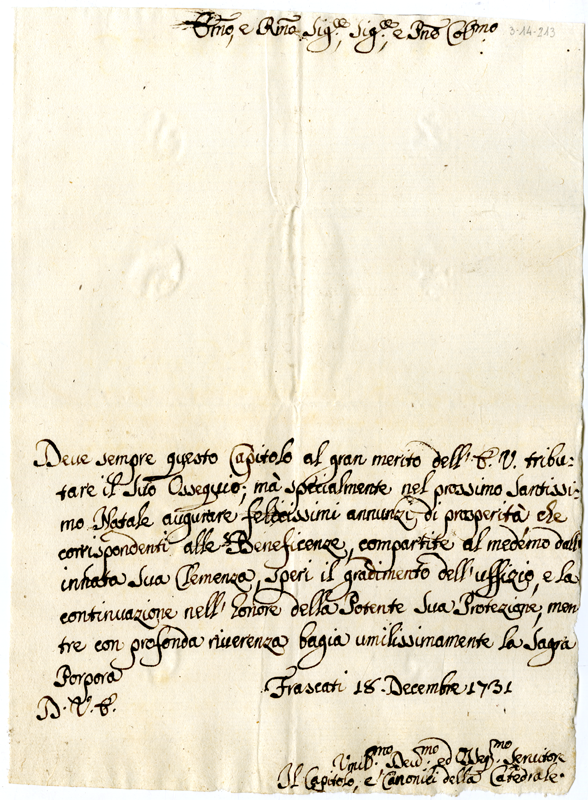 Em̃o, e Rm̃o Sig.re, Sig.re, e Pñe Colmo
3-14-213
Deve sempre questo Capitolo al gran merito dell' E. V. tribu-
tare il suo Ossequio; mà specialmente nel prossimo Santissi-
mo Natale augurare felicissimi annunzj di prosperità che
corrispondenti alle Beneficenze, compartite al medemo dalla
innata sua Clemenza, speri il gradimento dell' uffizio, e la
continuazione nell' honore della Potente sua Protezione, men
tre con profonda riverenza bagia umilissimamente la Sagra
Porpora
Frascati 18. Decembre 1731
D. V. E.
Umil.mo Dev.mo ed Obl.mo Servitore
Il Capitolo, e Canonici della Catedrale.